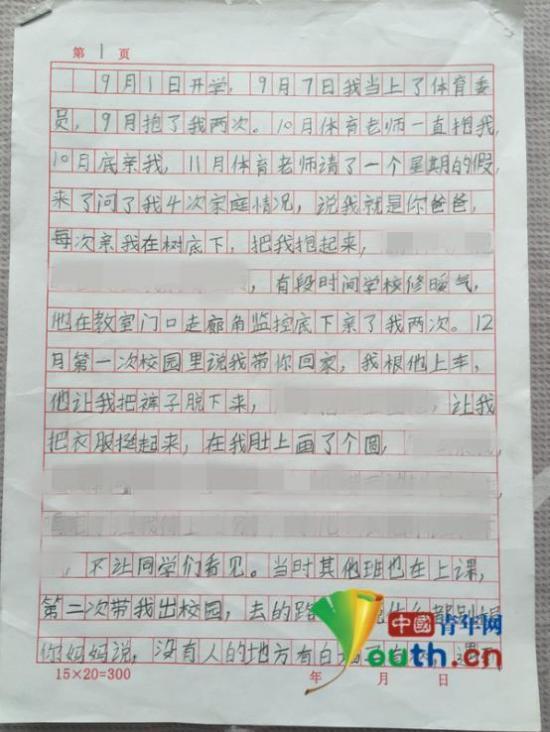 第 1 页
9月1日开学，9月7日我当上了体育委
员，9月抱了我两次。10月体育老师一直抱我，
10月底亲我，11月体育老师请了一个星期的假，
来了问了我4次家庭情况，说我就是你爸爸，
每次亲我在树底下，把我抱起来，
有段时间学校修暖气，
他在教室门口走廊角监控底下亲了我两次。12
月第一次校园里说我带你回家，我根他上车，
他让我把裤子脱下来，让我
把衣服挺起来，在我肚上画了个圆，
，不让同学们看见。当时其他班也在上课，
第二次带我出校园，去的路
你妈妈说，没有人的地方有白
15×20=300 年 月 日
中国青年网
youth.cn